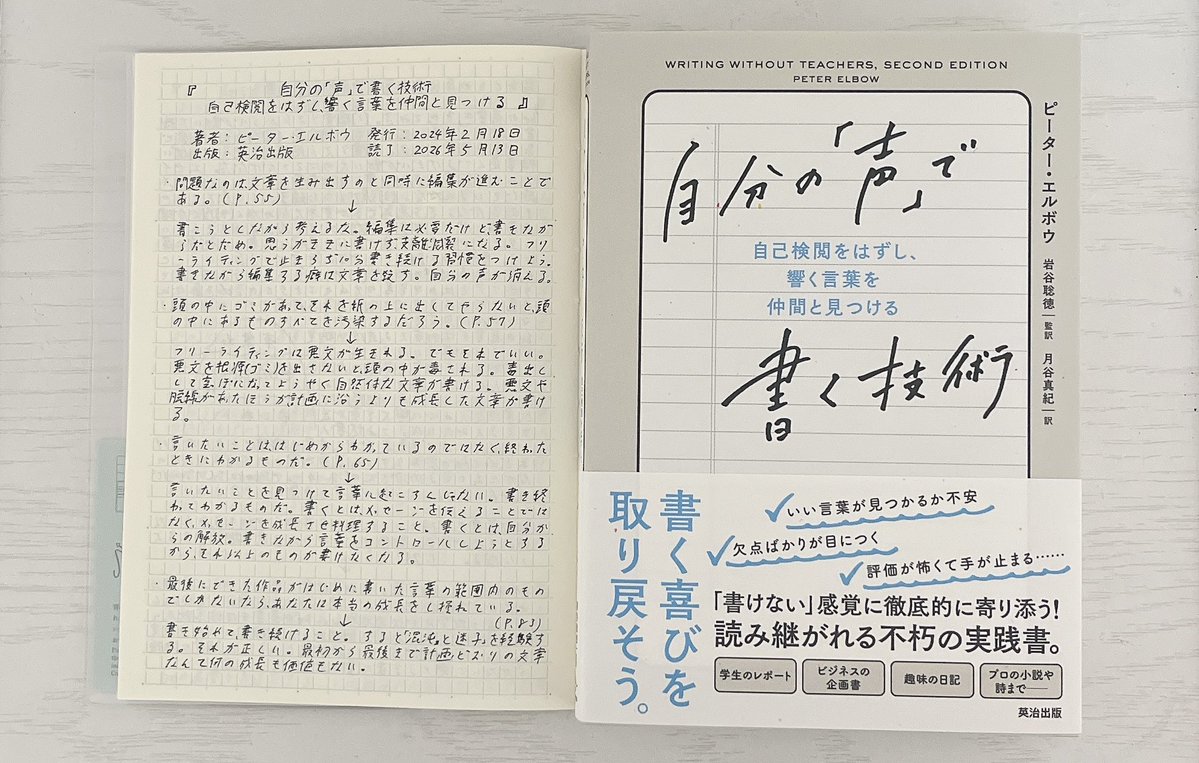 『 自分の「声」で書く技術
自己検閲をはずし、響く言葉を仲間と見つける 』
著者：ピーター・エルボウ 発行：2024年2月18日
出版：英治出版 読了：2026年5月13日
・問題なのは文章を生み出すのと同時に編集が進むことで
ある。(P.55)
↓
書こうとしながら考えるな。編集は必要だけど書きなが
らだとだめ。思うがままに書けず支離滅裂になる。フリ
ーライティングで止まらずに書き続ける習慣をつけよう。
書きながら編集する癖は文章を殺す。自分の声が消える。
・頭の中にゴミがあって、それを紙の上に出してやらないと、頭
の中にあるものすべてを汚染するだろう。(P.57)
↓
フリーライティングは悪文が生まれる。でもそれでいい。
悪文を根源(ゴミ)を出さないと頭の中が毒される。毒出し
して空っぽになってようやく自然な文章が書ける。悪文や
脱線があたほうが計画に沿うよりも成長した文章が書け
る。
・言いたいことは、はじめからわかっているのではなく、終わった
ときにわかるものだ。(P.65)
↓
言いたいことを見つけて言葉に起こすんじゃない。書き終
わってわかるものだ。書くとはメッセージを伝えることでは
なく、メッセージを成長させ料理すること。書くとは自分か
らの解放。書きながら言葉をコントロールしようとする
から、それ以上のものが書けなくなる。
・最後にできた作品がはじめに書いた言葉の範囲内のもの
でしかないなら、あなたは本当の成長をし損ねている。
(P.83)
↓
書き始めて、書き続けること。すると「混沌」と迷子を経験す
る。それが正しい。最初から最後まで計画どおりの文章
なんて何の成長も価値もない。
WRITING WITHOUT TEACHERS, SECOND EDITION
PETER ELBOW
自分の「声」で
自己検閲をはずし、
響く言葉を
仲間と見つける
書く技術
ピーター・エルボウ 岩谷聡徳｜監訳 月谷真紀｜訳
書く喜びを
取り戻そう。
いい言葉が見つかるか不安
欠点ばかりが目につく
評価が怖くて手が止まる……
「書けない」感覚に徹底的に寄り添う！
読み継がれる不朽の実践書。
学生のレポート
ビジネスの
企画書
趣味の日記
プロの小説や
詩まで──
英治出版